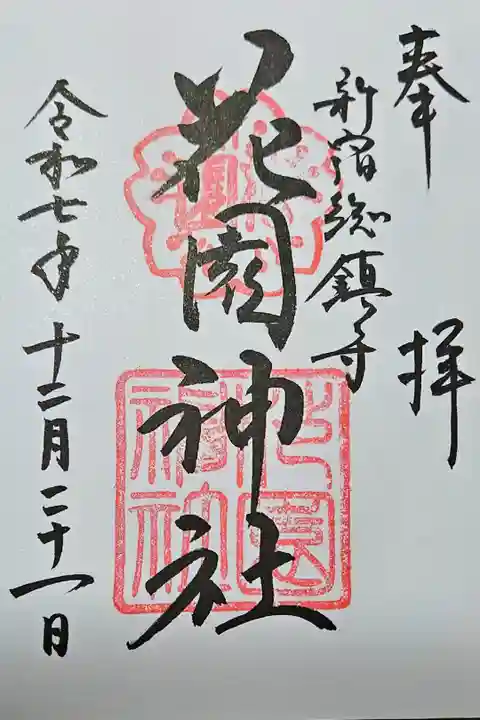 奉拝
新宿総鎮守
花園神社
花園神社
令和七年十二月二十一日